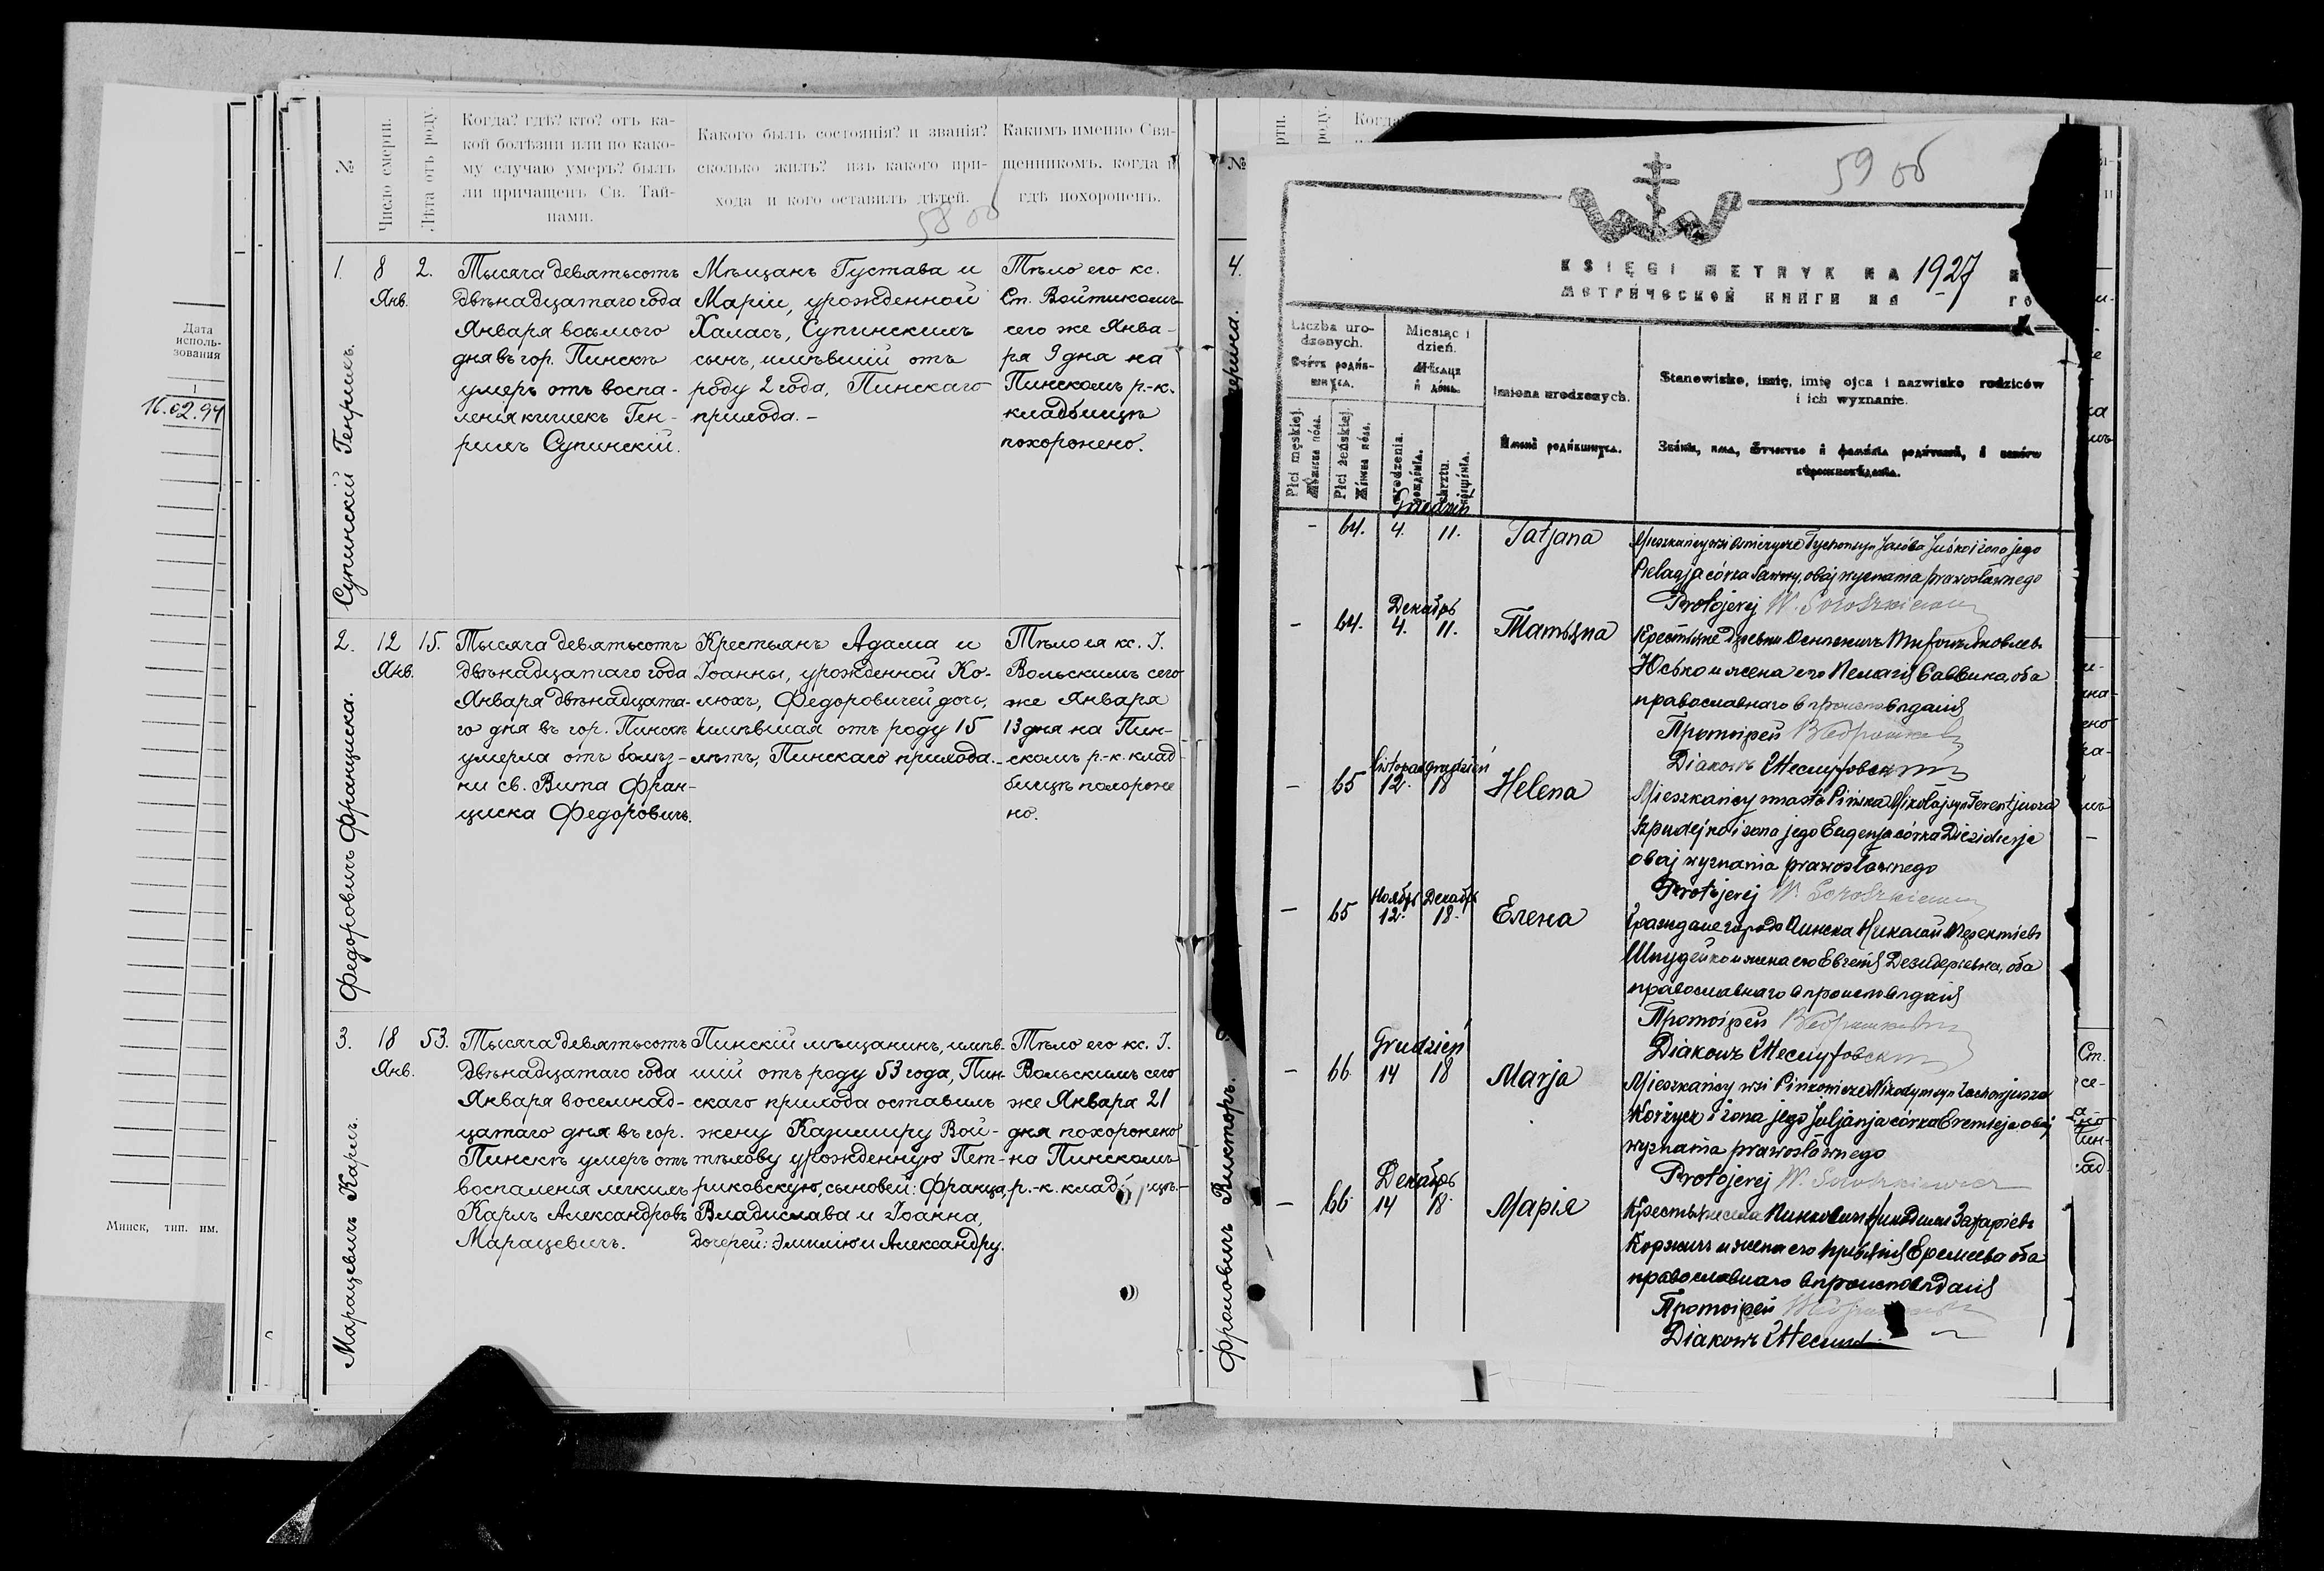 Дата
исполь-
зования
16.02.94
Минск, тип. им.
№
Число смерти.
Лѣта отъ роду.
Когда? гдѣ? кто? отъ ка-
кой болѣзни или по како-
му случаю умеръ? былъ
ли причащенъ Св. Тай-
нами.
Какого былъ состоянія? и званія?
сколько жилъ? изъ какого при-
хода и кого оставилъ дѣтей.
Какимъ именно Свя-
щенникомъ, когда и
гдѣ похороненъ.
58 об
Супинскій Генрихъ.
1.
8
Янв.
2.
Тысяча девятьсотъ
двѣнадцатаго года
Января восьмого
дня въ гор. Пинскѣ
умеръ отъ воспа-
ленія кишекъ Ген-
рихъ Супинскій.
Мѣщанъ Густава и
Маріи, урожденной
Халасъ, Супинскихъ
сынъ, имѣвшій отъ
роду 2 года, Пинскаго
прихода.-
Тѣло его кс.
Ст. Войтикомъ
сего же Янва-
ря 9 дня на
Пинскомъ р.-к.
кладбищѣ
похоронено.
Федоровичъ Франциска.
2.
12
Янв.
15.
Тысяча девятьсотъ
двѣнадцатаго года
Января двѣнадцата-
го дня въ гор. Пинскѣ
умерла отъ болѣз-
ни св. Вита Фран-
циска Федоровичъ.
Крестьянъ Адама и
Іоанны, урожденной Ко-
люхъ, Федоровичей дочь,
имѣвшая отъ роду 15
лѣтъ, Пинскаго прихода.-
Тѣло ея кс. І.
Вольскимъ сего
же Января
13 дня на Пин-
скомъ р.-к. клад
бищѣ похороне
но.
Марацевичъ Карлъ.
3.
18
Янв.
53.
Тысяча девятьсотъ
двѣнадцатаго года
Января восемнад-
цатаго дня въ гор.
Пинскѣ умеръ отъ
воспаленія легкихъ
Карлъ Александровъ
Марацевичъ.
Пинскій мѣщанинъ, имѣв-
шій отъ роду 53 года, Пин-
скаго прихода оставилъ
жену Казимиру Вой-
тѣхову урожденную Пет-
риковскую, сыновей: Франца,
Владислава и Іоанна,
дочерей: Эмилію и Александру.
Тѣло его кс. І.
Вольскимъ сего
же Января 21
дня похоронено
на Пинскомъ
р.-к. кладбищѣ.-
№
рти.
роду.
Когда
4.
Фроловичъ Викторъ.
59 об
KSIĘGI METRYK NA 1927
МЕТРИЧЕСКОЙ КНИГИ НА
Liczba uro-
dzonych.
Счётъ родив-
шихся.
Miesiąc i
dzień.
Мѣсяцъ
и день.
Imiona urodzonych.
Имена родившихся.
Stanowisko, imię, imię ojca i nazwisko rodziców
i ich wyznanie.
Званіе, имя, отчество и фамилія родителей, и какого
вѣроисповѣданія.
Płci męskiej.
Мужеска пола.
Płci żeńskiej.
Женска пола.
urodzenia.
рожденія.
chrztu.
крещенія.
Grudzień
- 64. 4. 11. Tatjana
Pielagja córka Sawwy, obaj wyznania prawosławnego
Protojerej W.
Декабрь
- 64. 4. 11. Татьяна
Юсько и жена его Пелагія Саввина, оба
православнаго вѣроисповѣданія
Протоіерей
Діаконъ
Listopad grudzień
- 65 12. 18 Helena
Mieszkańcy miasta Pińska Mikołaj syn Terentjusza
Szpudejko i żona jego Eugenja córka Diezidierja
obaj wyznania prawosławnego
Protojerej W.
Ноябрь Декабрь
- 65 12. 18. Елена
Граждане города Пинска Николай Терентіевъ
Шпудейко и жена его Евгенія Дезидеріевна, оба
православнаго вѣроисповѣданія
Протоіерей
Діаконъ
Grudzień
- 66 14 18 Marja
Mieszkańcy wsi Pinkowicze Nikodym syn Zacharjusza
Korżycz i żona jego Juljanja córka Eremieja obaj
wyznania prawosławnego
Protojerej W.
Декабрь
- 66. 14 18. Марія
Крестьяне села Пинковичи Никодимъ Захаріевъ
Коржичъ и жена его Іуліанія Еремеева оба
православнаго вѣроисповѣданія
Протоіерей
Діаконъ